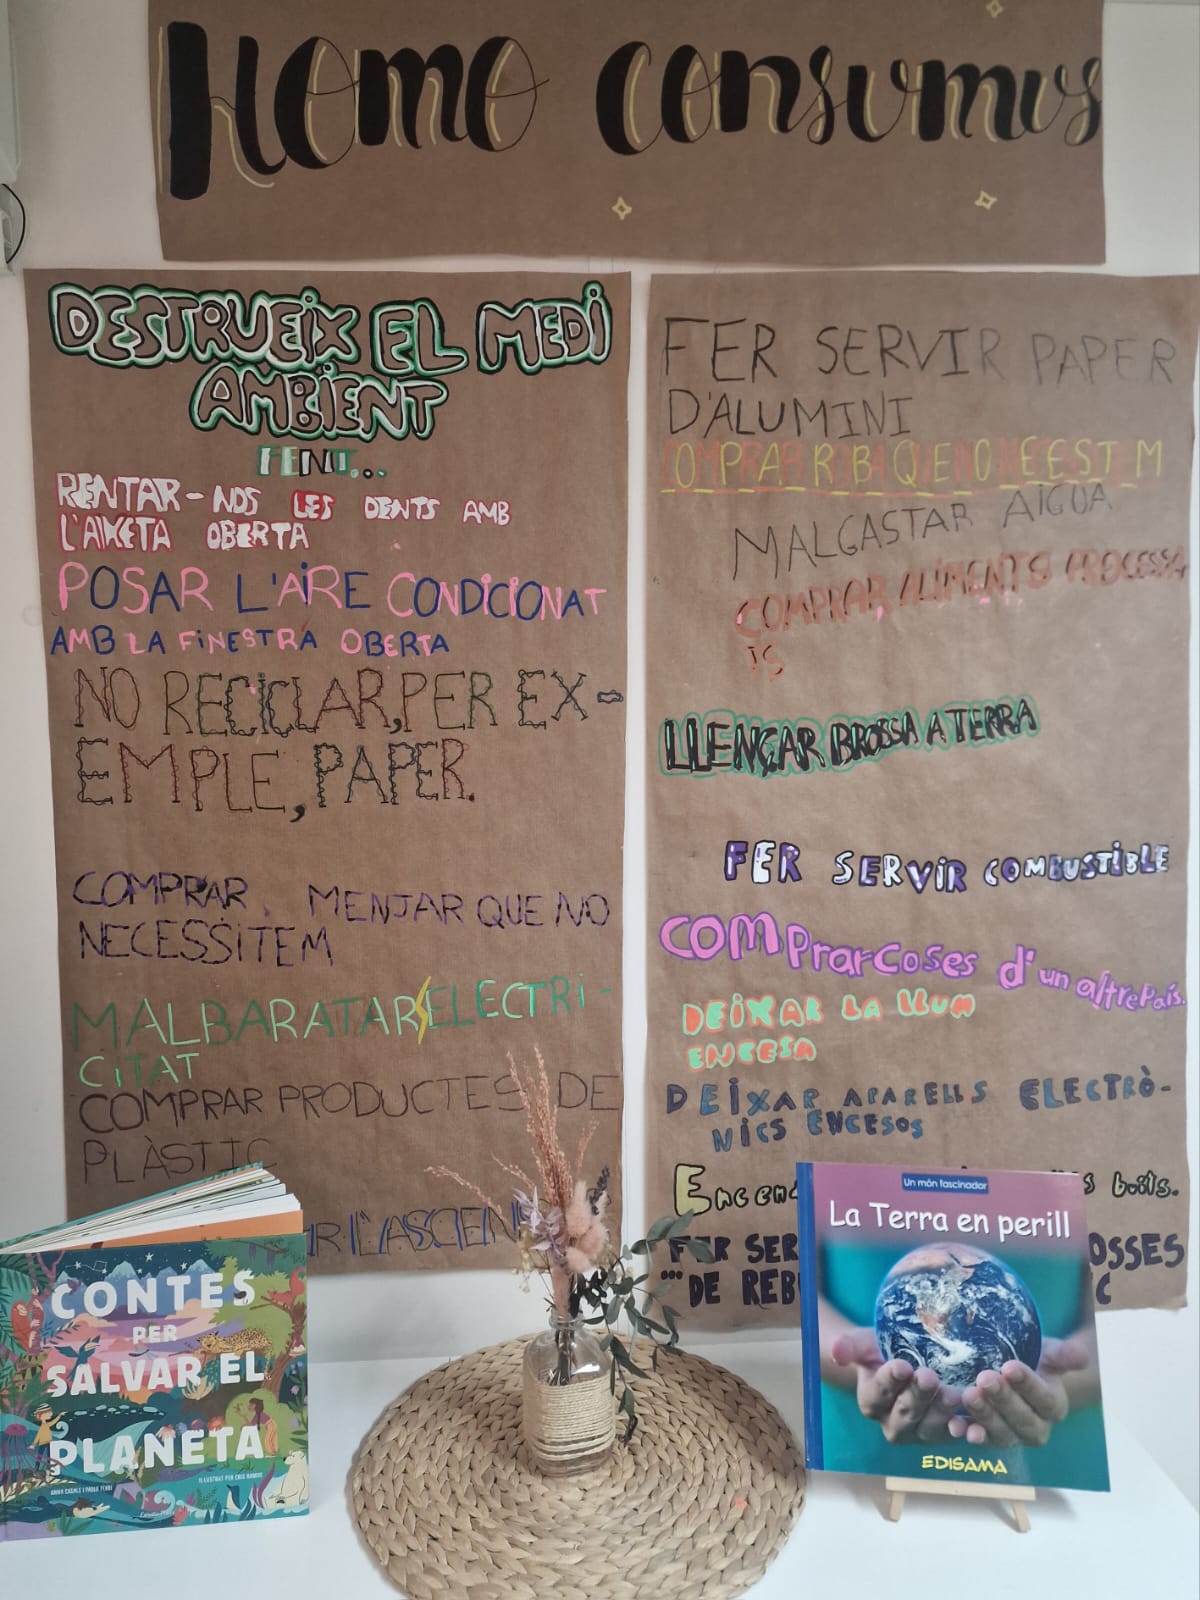 Homo consumus
DESTRUEIX EL MEDI
AMBIENT
FENT...
RENTAR-NOS LES DENTS AMB
L'AIXETA OBERTA
POSAR L'AIRE CONDICIONAT
AMB LA FINESTRA OBERTA
NO RECICLAR, PER EX-
EMPLE, PAPER.
COMPRAR MENJAR QUE NO
NECESSITEM
MALBARATAR ELECTRI-
CITAT
COMPRAR PRODUCTES DE
PLÀSTIC
R L'ASCENS
FER SERVIR PAPER
D'ALUMINI
COMPRAR ROBA QUE NO
MALGASTAR AIGUA
COMPRAR ALIMENTS PROCESSA
TS
LLENÇAR BROSSA A TERRA
FER SERVIR COMBUSTIBLE
Comprar coses d'un altre país.
DEIXAR LA LLUM
ENCESA
DEIXAR APARELLS ELECTRÒ-
NICS ENCESOS
Encen s buits.
FER SER OSSES
...DE REB C
CONTES
PER
SALVAR EL
PLANETA
IL·LUSTRAT PER CRIS RAMOS
ANNA CASALS I PAULA FERRI
Un món fascinador
La Terra en perill
EDISAMA